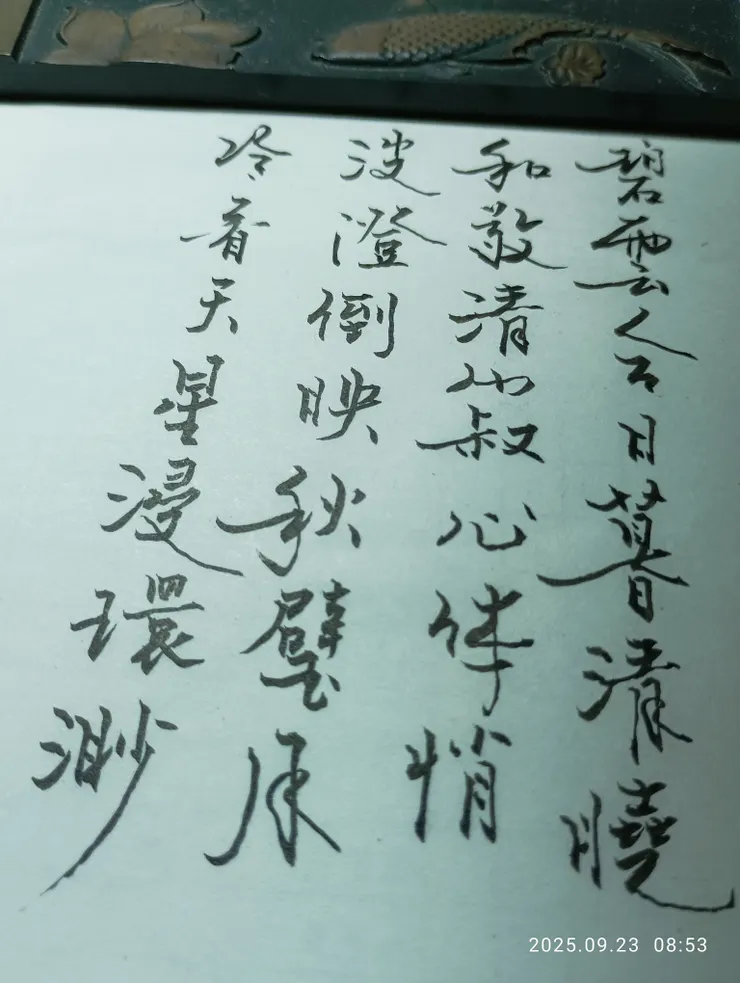 碧雲合日暮清曉
和敬清寂心体悄
波澄倒映秋璧月
冷看天星浸環渺
2025.09.23 08:53